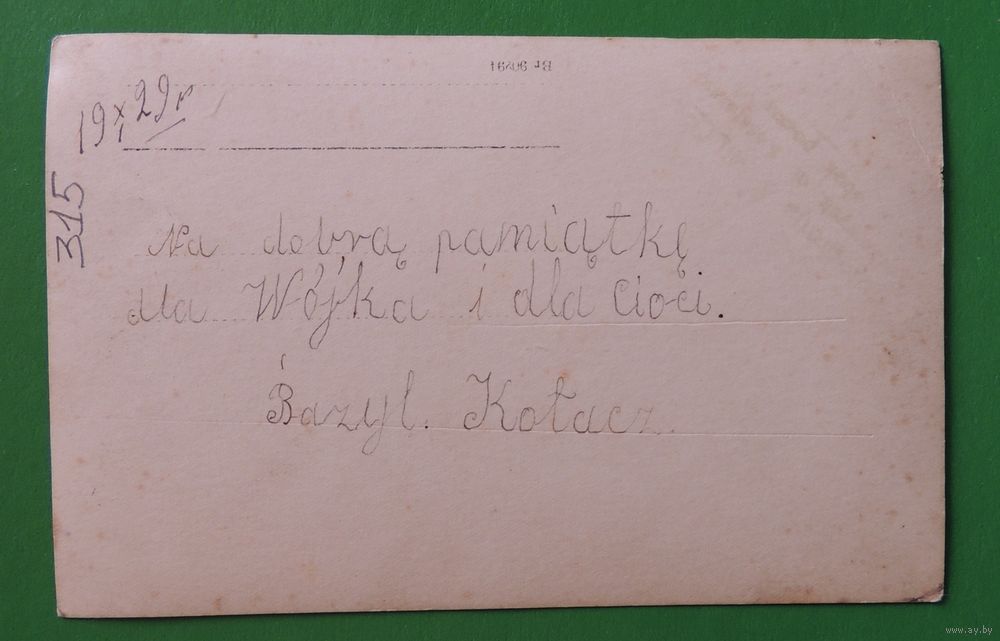 19 X/1 29 r
315
Na dobrą pamiątkę
dla Wójka i dla Cioci.
Bazyl. Kołacz.
www.ay.by